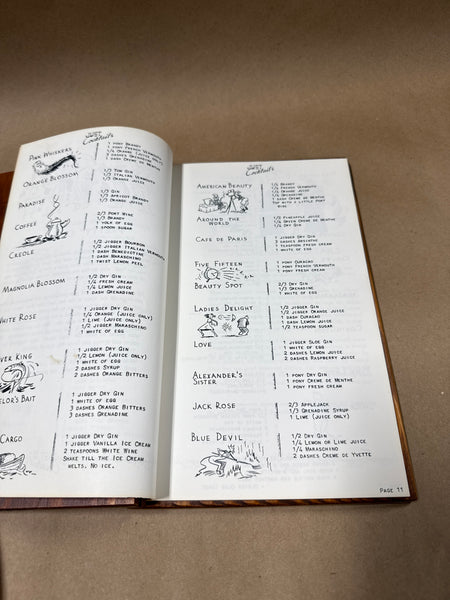 Cocktails
Pink Whiskers
1 Pony Brandy
1 Pony French Vermouth
1/4 Orange Juice
3 Dashes Grenadine
1 Dash Creme de Menthe
Orange Blossom
1/3 Tom Gin
1/3 Italian Vermouth
1/3 Orange Juice
Paradise
1/3 Gin
1/3 Apricot Brandy
1/3 Orange Juice
Coffee
2/3 Port Wine
1/3 Brandy
1 Yolk of Egg
1 Spoon Sugar
Creole
1/2 Jigger Bourbon
1/2 Jigger Italian Vermouth
1 Dash Benedictine
1 Dash Maraschino
1 Twist Lemon Peel
Magnolia Blossom
1/2 Dry Gin
1/4 Fresh Cream
1/4 Lemon Juice
1 Dash Grenadine
White Rose
1 Jigger Dry Gin
1/4 Orange (Juice Only)
1 Lime (Juice Only)
1/2 Jigger Maraschino
1 White of Egg
ver King
1 Jigger Dry Gin
1/2 Lemon (Juice Only)
1 White of Egg
2 Dashes Syrup
2 Dashes Orange Bitters
elor's Bait
1 Jigger Dry Gin
1 White of Egg
3 Dashes Orange Bitters
3 Dashes Grenadine
Cargo
1 Jigger Dry Gin
1 Jigger Vanilla Ice Cream
2 Teaspoons White Wine
Shake till the Ice Cream
melts. No ice.
Cocktails
American Beauty
1/4 Brandy
1/4 French Vermouth
1/4 Orange Juice
1/4 Grenadine
1 Dash Creme de Menthe
Top with a little Port
Wine
Around the
World
1/2 Pineapple Juice
1/4 Green Creme de Menthe
1/4 Dry Gin
Cafe de Paris
1 Jigger Dry Gin
3 Dashes Absinthe
1 Teaspoon Fresh Cream
1 White of Egg
Five Fifteen
1 Pony Curacao
1 Pony French Vermouth
1 Pony Fresh Cream
Beauty Spot
2/3 Dry Gin
1/3 Grenadine
1 White of Egg
Ladies Delight
1/2 Orange Juice
1/2 Jigger Dry Gin
1 Dash Curacao
1 Dash Lemon Juice
1/2 Teaspoon Sugar
Love
1 Jigger Sloe Gin
1 White of Egg
2 Dashes Lemon Juice
2 Dashes Raspberry Juice
Alexander's
Sister
1 Pony Dry Gin
1 Pony Creme de Menthe
1 Pony Fresh Cream
Jack Rose
2/3 Applejack
1/3 Grenadine Syrup
1 Lime (Juice Only)
Blue Devil
1/2 Dry Gin
1/4 Lemon or Lime Juice
1/4 Maraschino
2 Dashes Creme de Yvette
Page 11